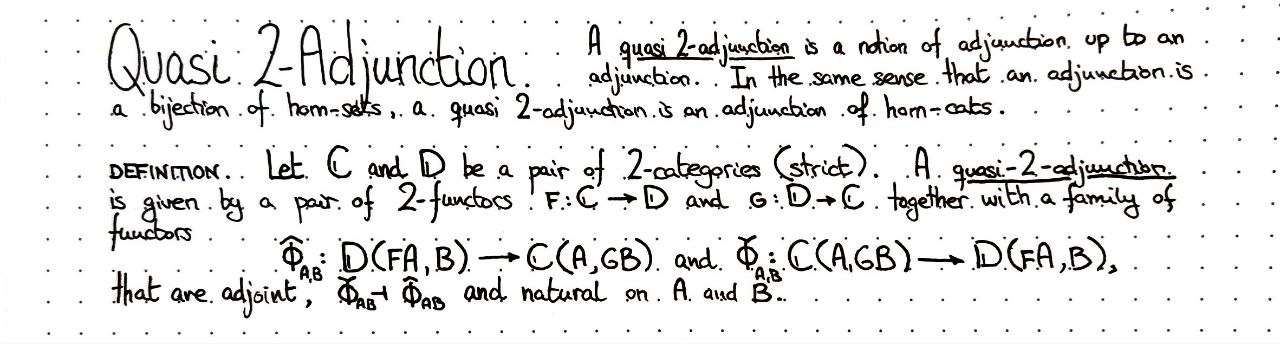 Quasi 2-Adjunction. A quasi 2-adjunction is a notion of adjunction up to an
adjunction. In the same sense that an adjunction is
a bijection of hom-sets, a quasi 2-adjunction is an adjunction of hom-cats.
DEFINITION. Let ℂ and 𝔻 be a pair of 2-categories (strict). A quasi-2-adjunction
is given by a pair of 2-functors F: ℂ → 𝔻 and G: 𝔻 → ℂ together with a family of
functors
Φ̂_A,B : 𝔻(FA, B) → ℂ(A, GB) and Φ̌_A,B : ℂ(A, GB) → 𝔻(FA, B),
that are adjoint, Φ̌_AB ⊣ Φ̂_AB and natural on A and B.